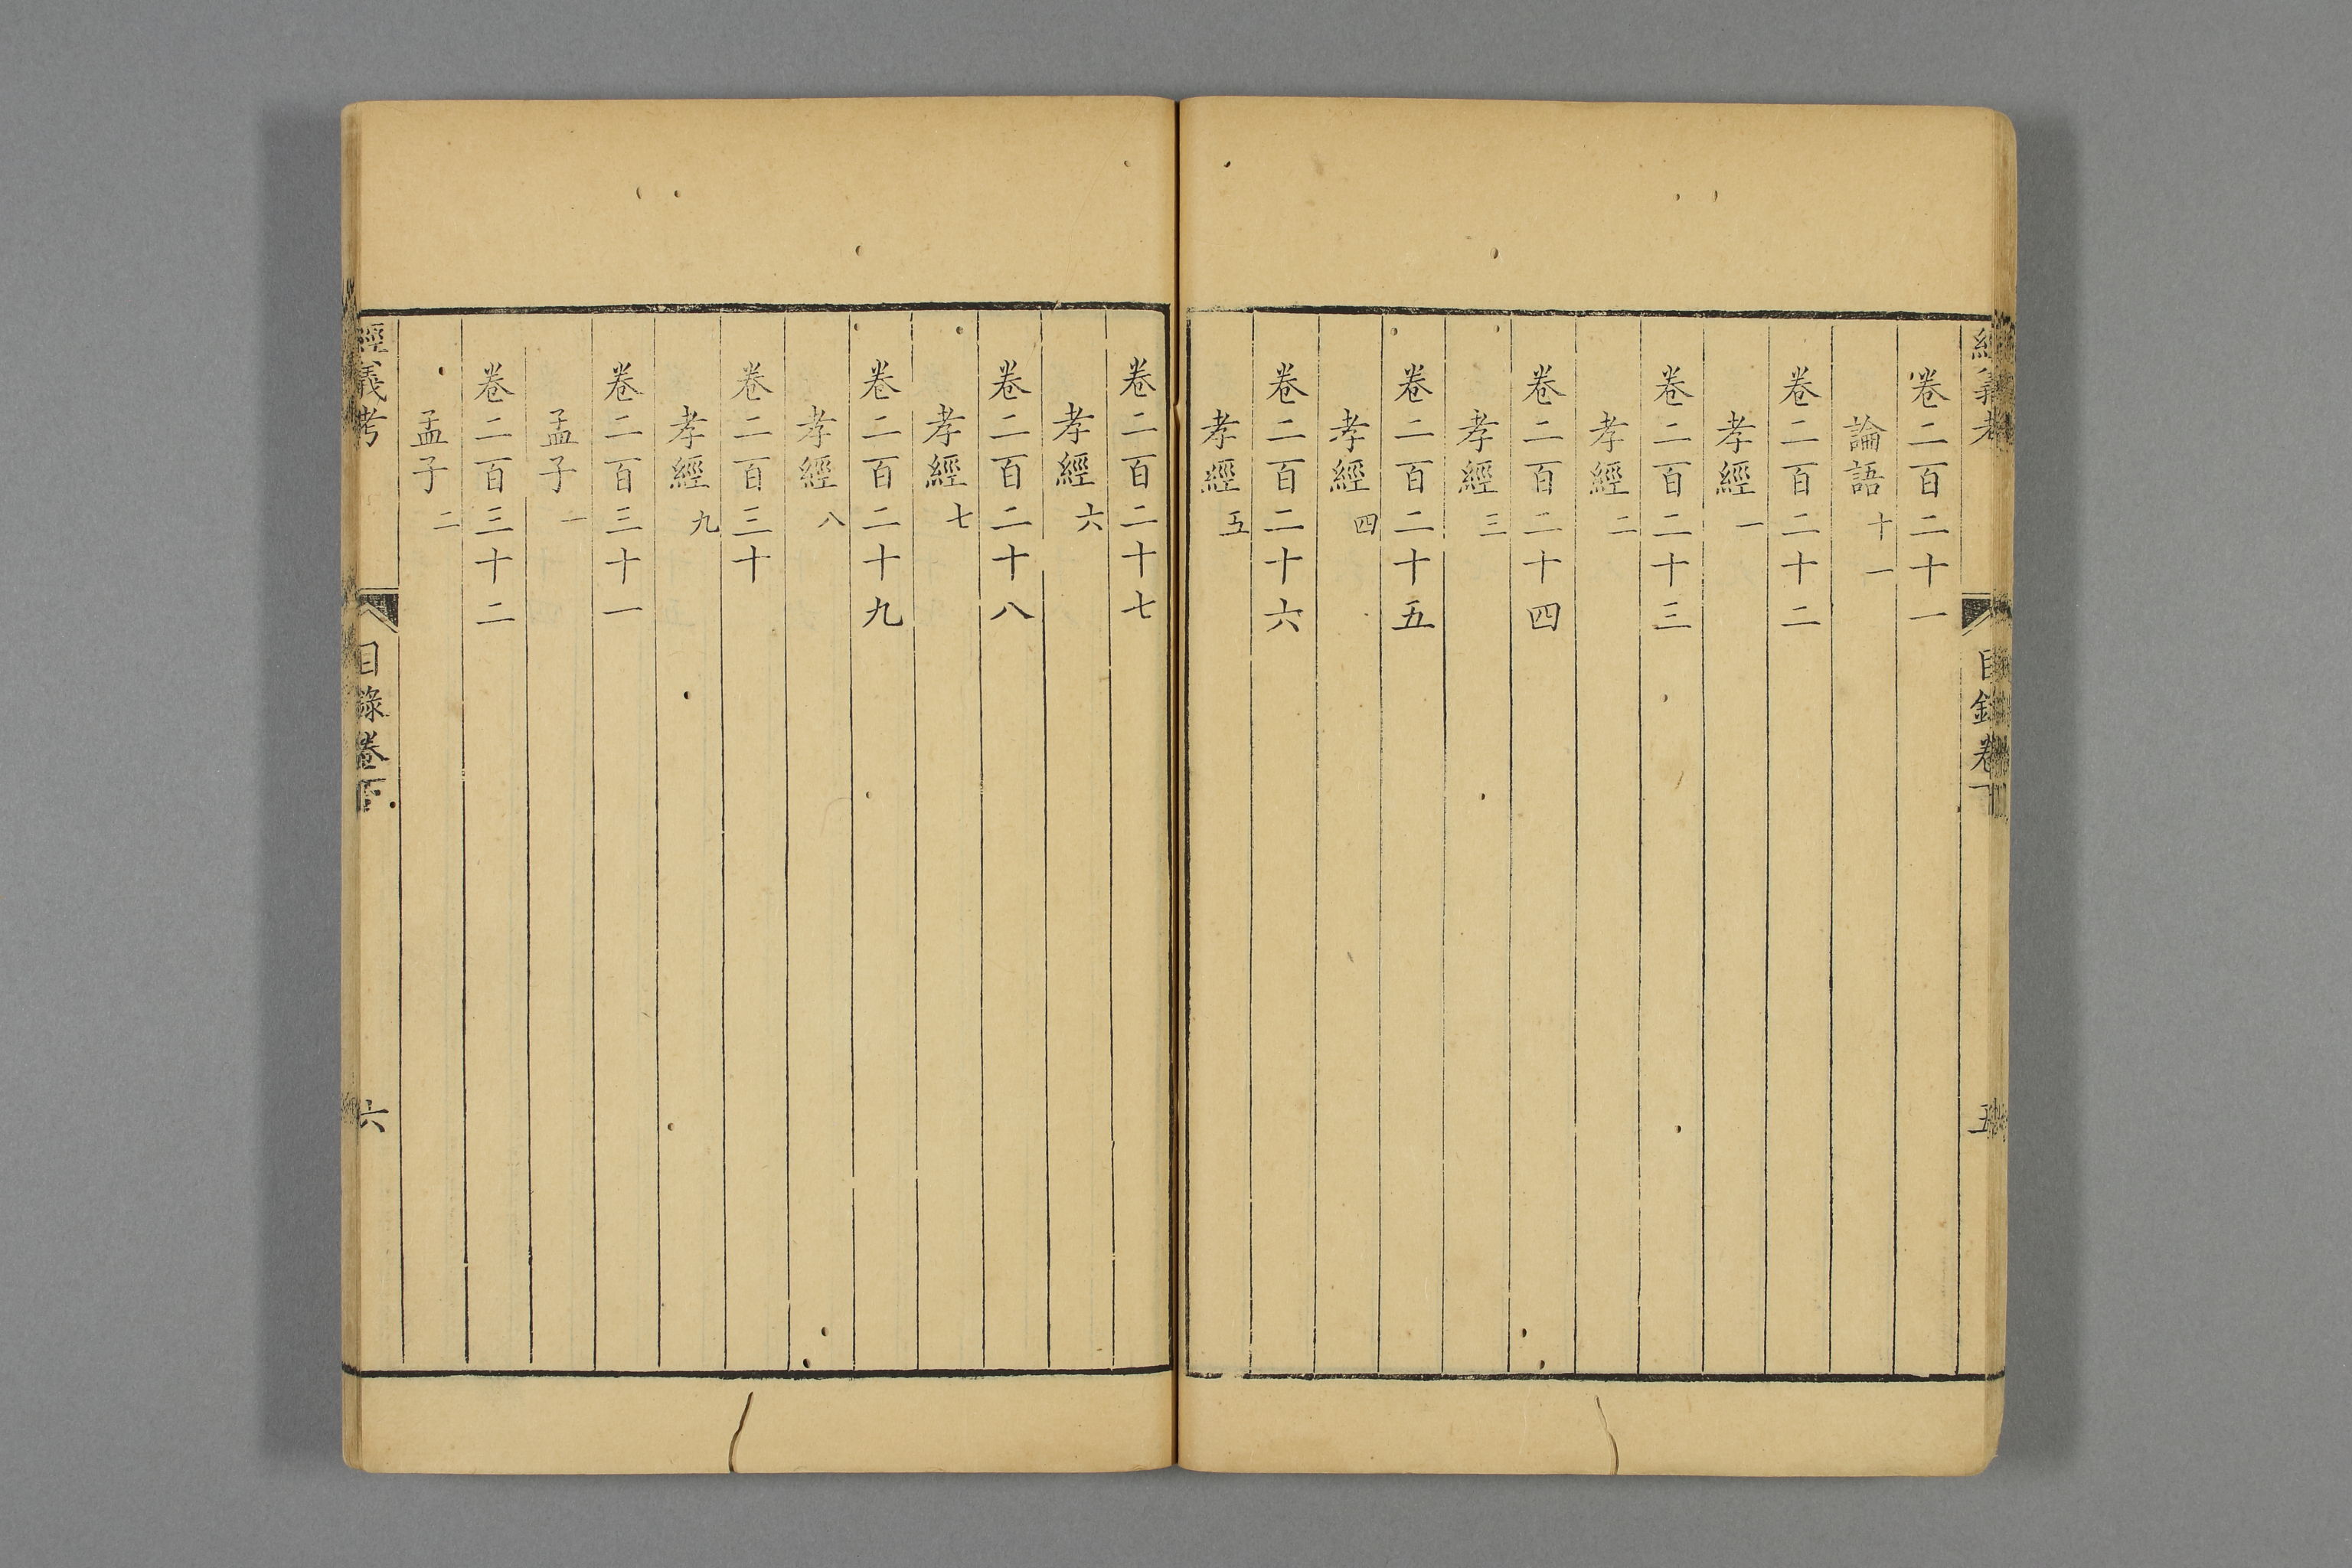 經義考
目錄卷下
五
卷二百二十一
論語十一
卷二百二十二
孝經一
卷二百二十三
孝經二
卷二百二十四
孝經三
卷二百二十五
孝經四
卷二百二十六
孝經五
卷二百二十七
孝經六
卷二百二十八
孝經七
卷二百二十九
孝經八
卷二百三十
孝經九
卷二百三十一
孟子一
卷二百三十二
孟子二
經義考
目錄卷下
六